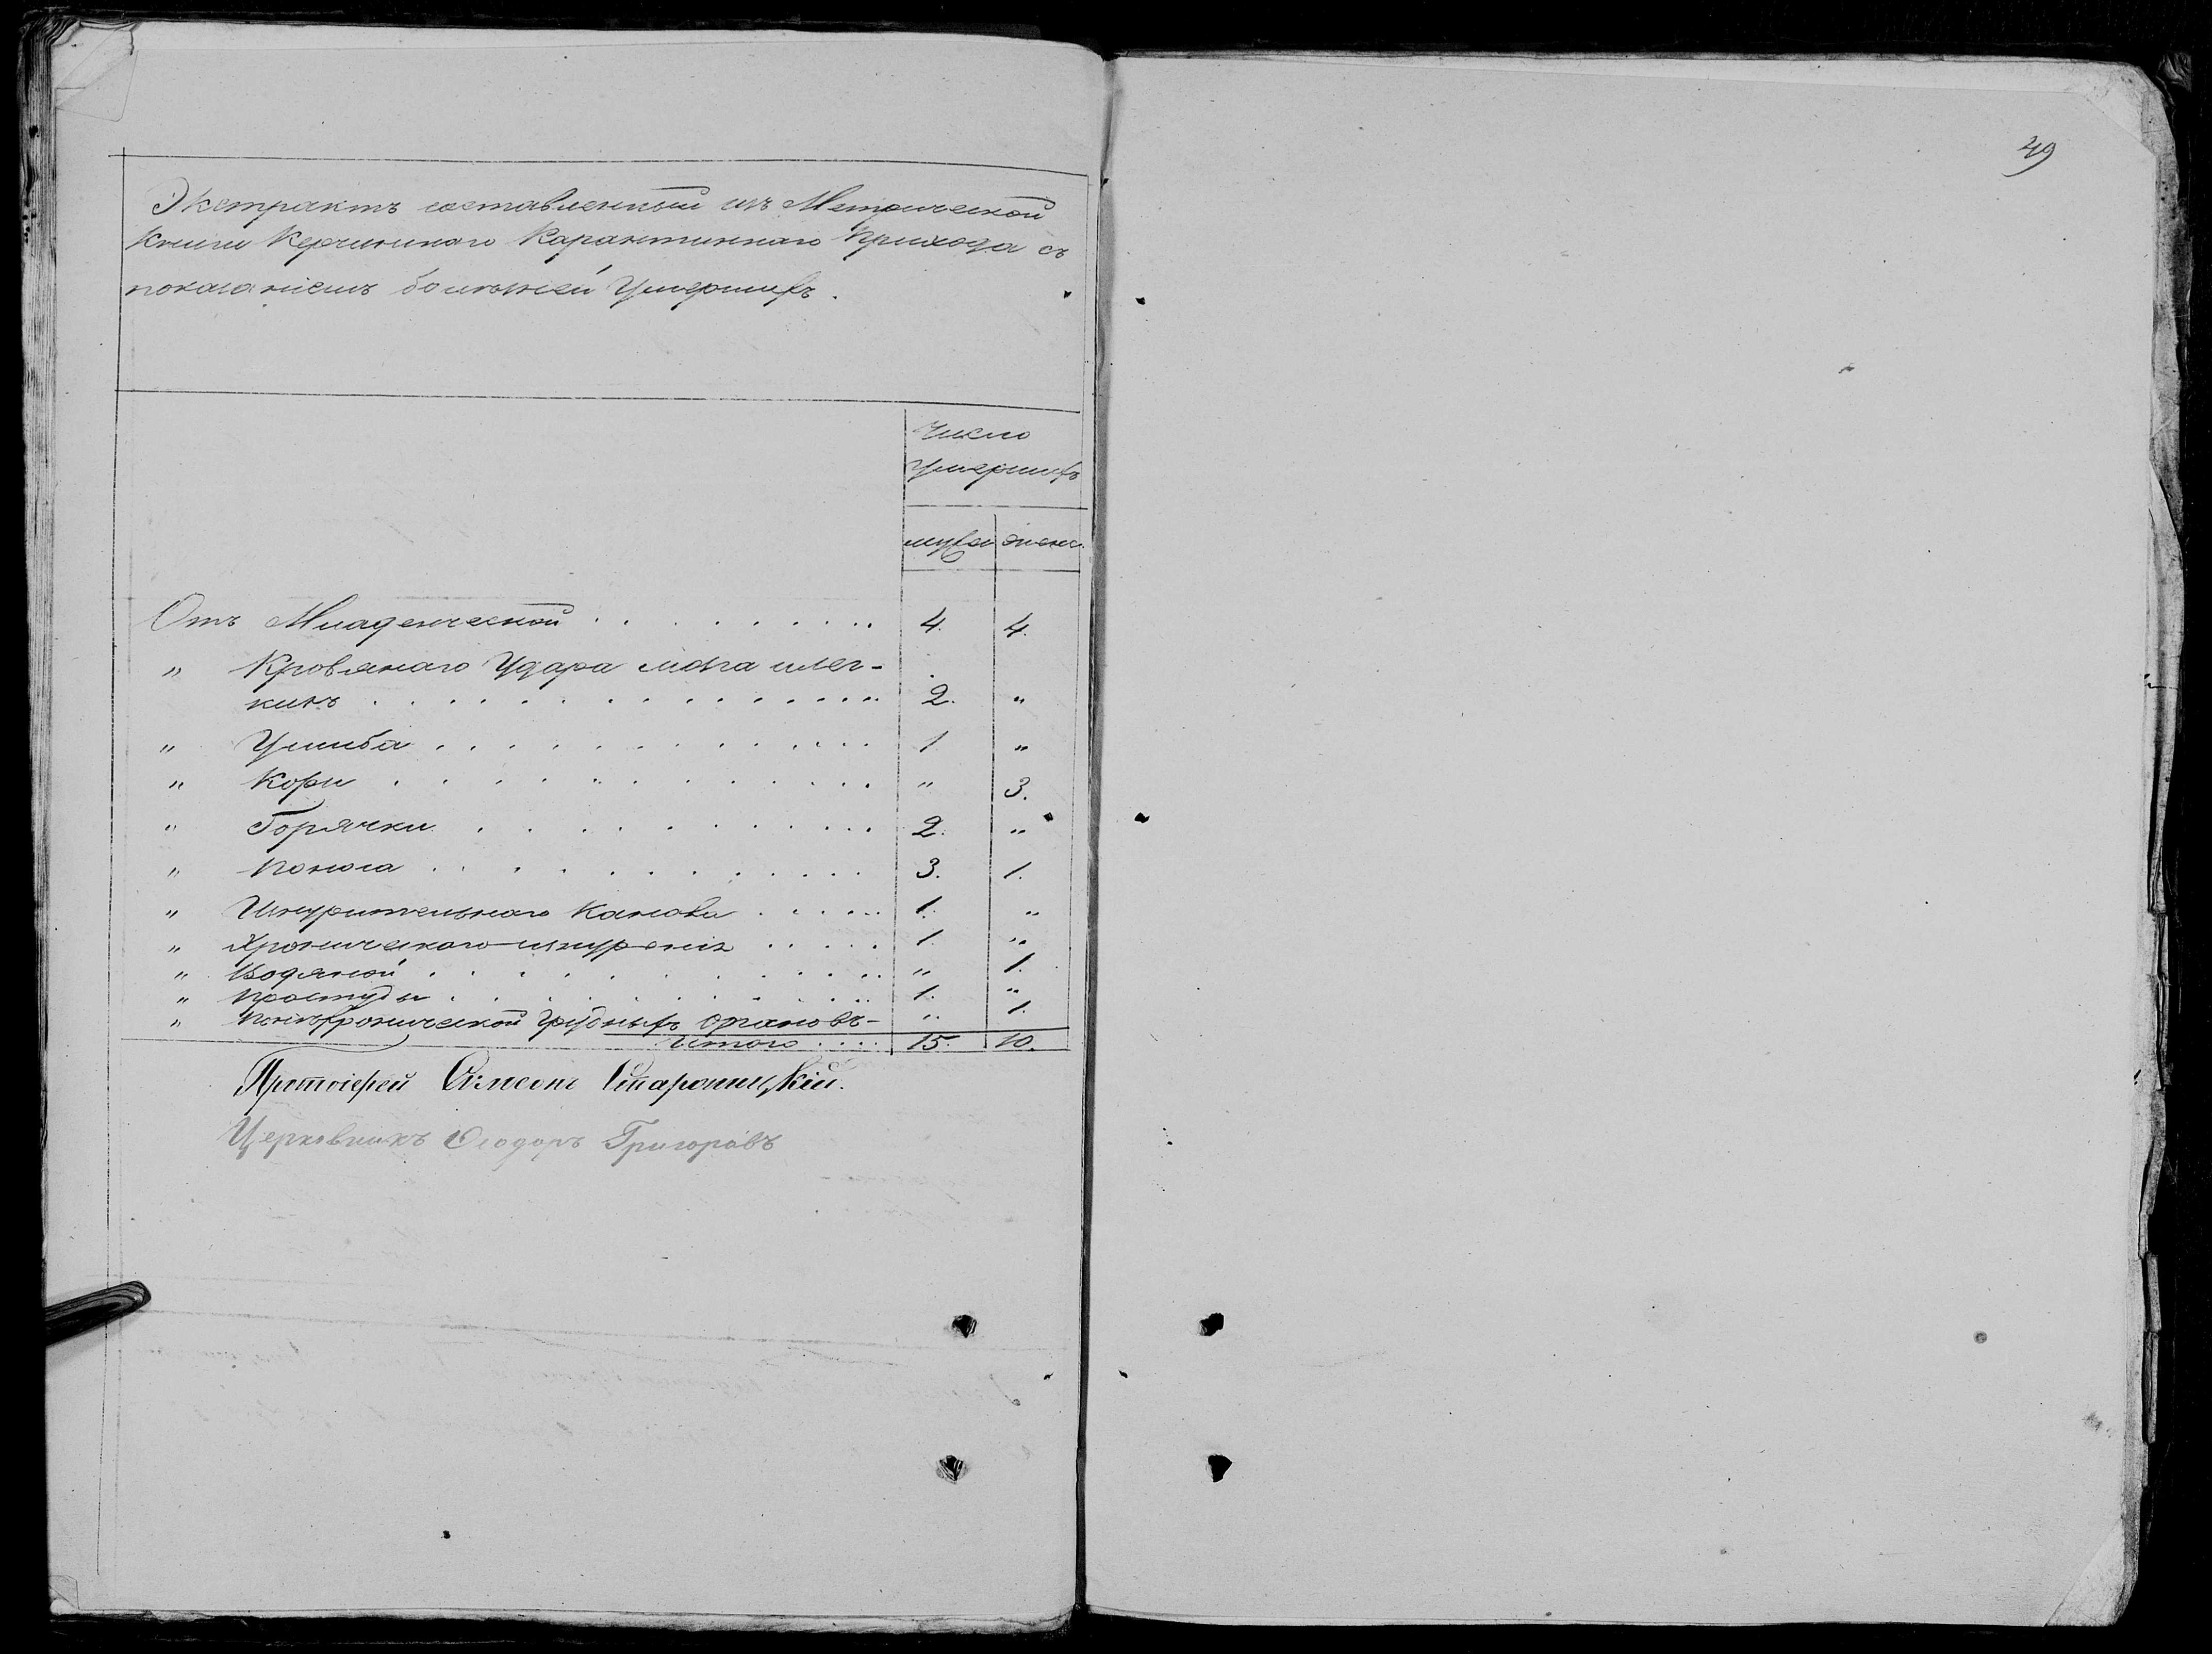 49
Экстрактъ составленный изъ Метрической
Книги Керчинскаго Карантиннаго Прихода съ
показаніемъ болѣзней Умершихъ.
Число
Умершихъ
муж. женс.
Отъ Младенческой . . . . . . . . . 4. 4.
" Кровянаго Удара мозга и лег-
кихъ . . . . . . . . . . . . . 2. "
" Ушиба . . . . . . . . . . . . 1 "
" Кори . . . . . . . . . . . . " 3.
" Горячки . . . . . . . . . . . 2. "
" Поноса . . . . . . . . . . . 3. 1.
" Изнурительнаго Кашля . . . . . 1. "
" Хроническаго изнуренія . . . . . 1. "
" Водяной . . . . . . . . . . . " 1.
" Простуды . . . . . . . . . . . 1. "
" хронической Грудныхъ Органовъ - " 1.
Итого . . . . 15. 10.
Протоіерей Сѵмеонъ
Церковникъ Ѳеодоръ Григоровъ